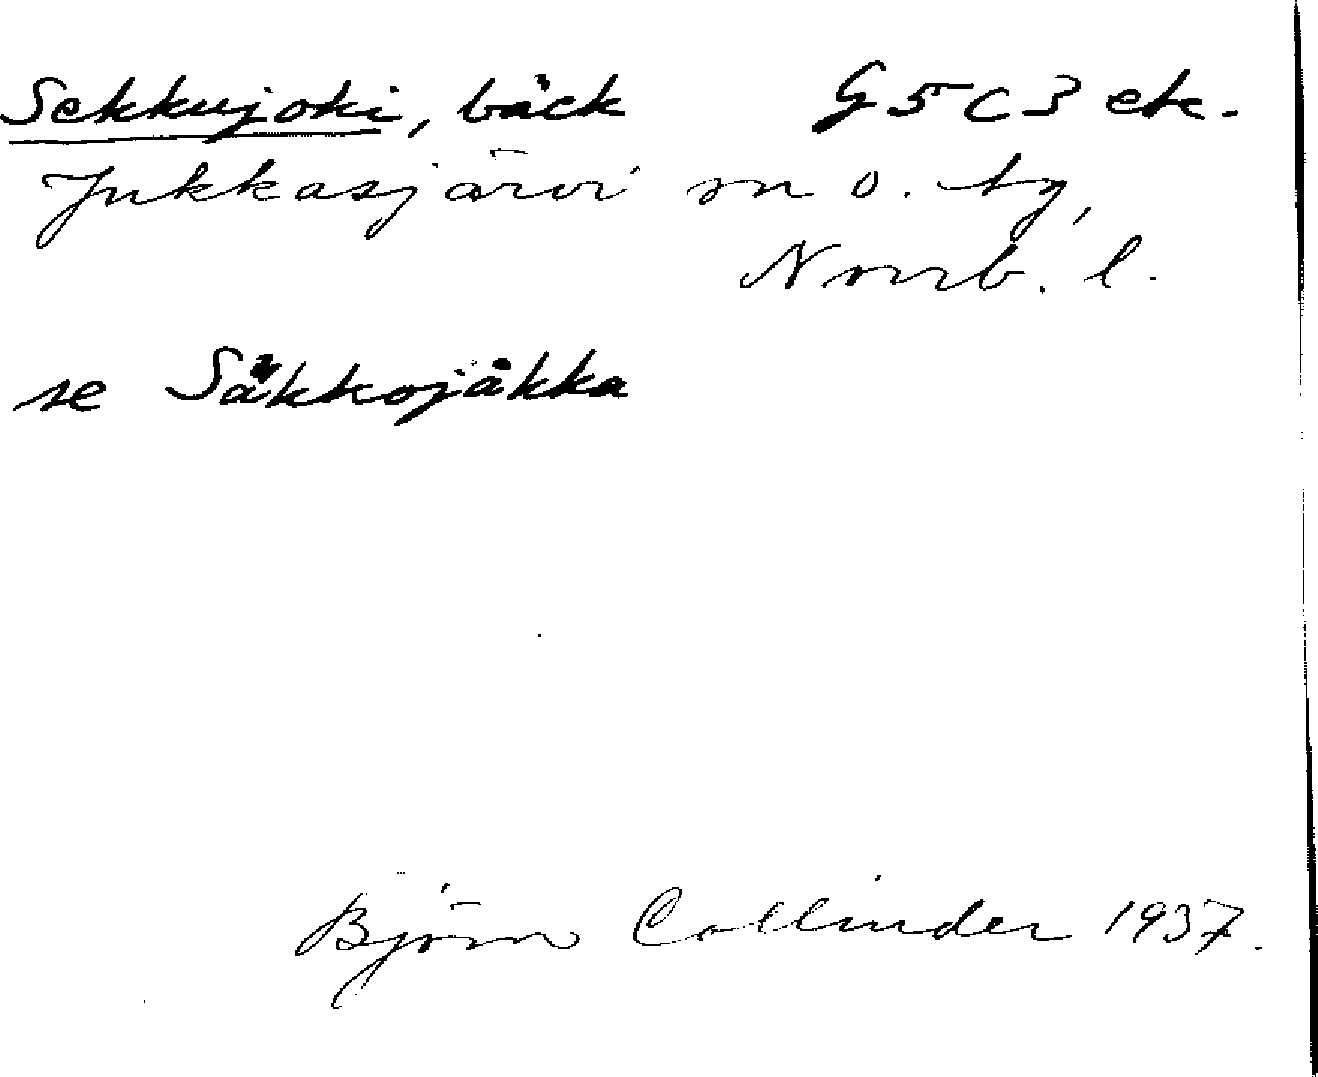 Sekkujoki, bäck G5C3 etc.
Jukkasjärvi sn o. tg,
Norrb. l.
se Säkkojåkka
Björn Collinder 1937.